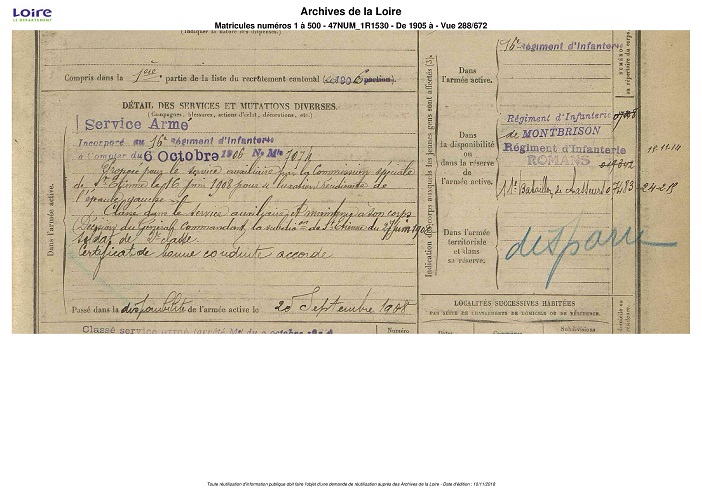 Loire
LE DÉPARTEMENT
Archives de la Loire
Matricules numéros 1 à 500 - 47NUM_1R1530 - De 1905 à - Vue 288/672
(Indiquer la nature des dispenses.)
Compris dans la 1ère partie de la liste du recrutement cantonal
DÉTAIL DES SERVICES ET MUTATIONS DIVERSES.
(Campagnes, blessures, actions d'éclat, décorations, etc.)
Service Armé
Incorporé au 16e Régiment d'Infanterie
à compter du 6 Octobre 1906 No Mle 7074
Proposé pour le service auxiliaire par la Commission spéciale
de St Etienne le 16 juin 1908 pour luxation récidivante de
l'épaule gauche
Classé dans le service auxiliaire et maintenu à son corps
Décision du Général Commandant la subdivon de St Etienne du 27 juin 1908
Soldat de 2e classe
Certificat de bonne conduite accordé
Passé dans la disponibilité de l'armée active le 20 Septembre 1908
Classé service armé
Numéro
Dans l'armée active.
Indication des corps auxquels les jeunes gens sont affectés
Dans
l'armée active.
16e Régiment d'Infanterie
Dans
la disponibilité
ou
dans la réserve
de
l'armée active.
Régiment d'Infanterie
de MONTBRISON
Régiment d'Infanterie
ROMANS
Bataillon de chasseurs 07483 24-2-18
Dans l'armée
territoriale
et dans
sa réserve.
disparu
NUMÉROS
au répertoire du corps.
LOCALITÉS SUCCESSIVES HABITÉES
PAR SUITE DE CHANGEMENTS DE DOMICILE OU DE RÉSIDENCE.
Dates
Communes
Subdivisions
Toute réutilisation d'information publique doit faire l'objet d'une demande de réutilisation auprès des Archives de la Loire - Date d'édition : 10/11/2018